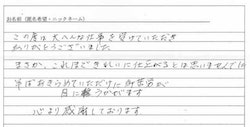 お名前（匿名希望・ニックネーム）
この度は大へんな仕事を受けていただき
ありがとうございました。
まさか、これほどきれいに仕上がるとは思いませんでした
半ばあきらめていただけに
目に浮かびます
心より感謝しております